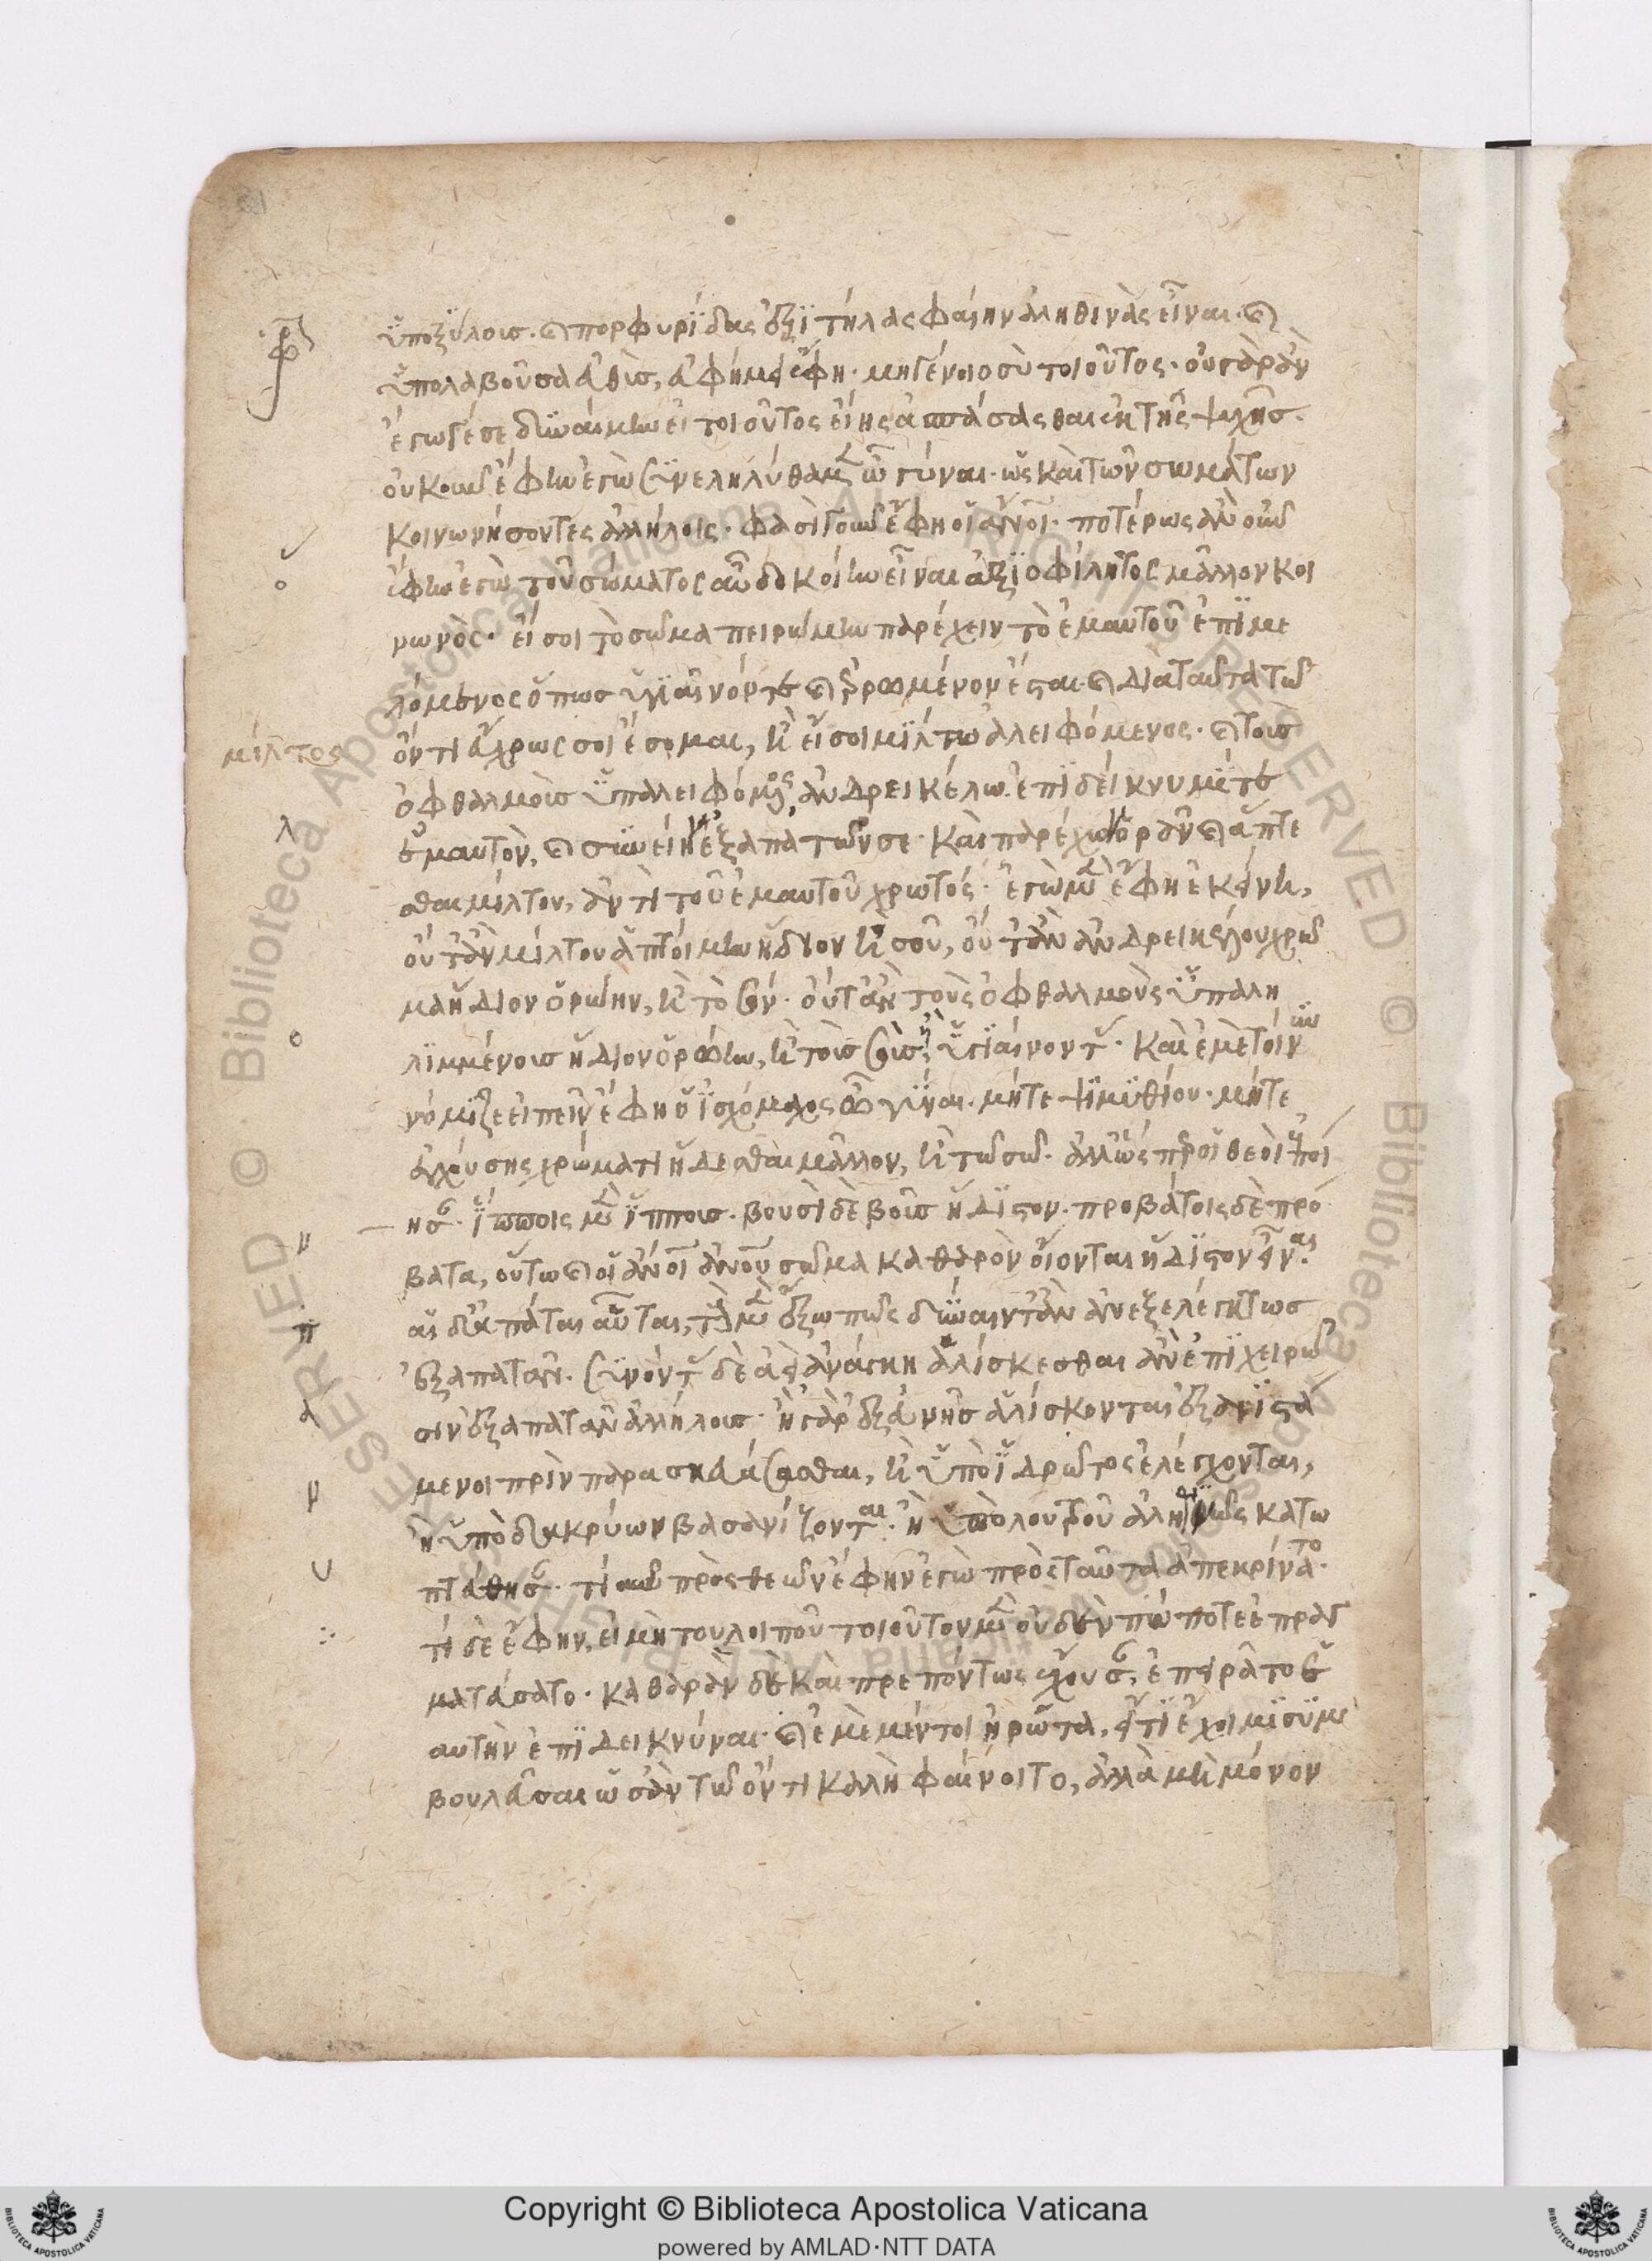 ὑποξύλοισ. καὶ πορφυρίδας ἐξιτήλας φαίην ἀληθινὰς εἶναι. καὶ
ὑπολαβοῦσα εὐθὺσ, εὐφήμει ἔφη. μὴ γένοιο σὺ τοιοῦτος. οὐ γὰρ ἂν
ἔγωγέ σε δυναίμην εἰ τοιοῦτος εἴης ἀσπάσασθαι ἐκ τῆς ψυχῆσ.
οὐκοῦν ἔφην ἐγὼ συνεληλύθαμεν ὦ γύναι. ὡς καὶ τῶν σωμάτων
κοινωνήσοντες ἀλλήλοις. φασὶ γοῦν ἔφη οἱ ἄνοι. ποτέρως ἂν οὖν
ἔφην ἐγὼ τοῦ σώματος αὖ δοκοίην εἶναι ἀξιοφίλητος μᾶλλον κοι
νωνὸς. εἴ σοι τὸ σῶμα πειρώμην παρέχειν τὸ ἐμαυτοῦ ἐπιμε
λόμενος ὅπως ὑγιαῖνόν τε καὶ ἐρρωμένον ἔσται. καὶ διὰ ταῦτα τῶ
ὄντι εὔχρως σοι ἔσομαι, ἢ εἴ σοι μίλτω ἀλειφόμενος. καὶ τοὺσ
μίλτος
ὀφθαλμοὺσ ὑπαλειφόμενος, ἀνδρεικέλω ἐπιδεικνύμι τε
ἐμαυτὸν, καὶ συνείην ἐξαπατῶν σε. καὶ παρέχων ὁρᾶν καὶ ἅπτε
σθαι μίλτον, ἀντὶ τοῦ ἐμαυτοῦ χρωτός. ἐγὼ μὲν ἔφη ἐκείνη,
οὔτ' ἂν μίλτου ἁπτοίμην ἥδιον ἢ σοῦ, οὔτ' ἂν ἀνδρεικέλου χρῶ
μα ἥδιον ὁρώην, ἢ τὸ σόν. οὔτ' ἂν τοὺς ὀφθαλμοὺς ὑπαλη
λιμμένοισ ἥδιον ὁρώην, ἢ τοὺσ σοὺσ ὑγιαίνοντας. καὶ ἐμὲ τοίνυν
νόμιζε εἰπεῖν ἔφη ὁ ἰσχόμαχος ὦ γύναι. μήτε ψιμυθίου. μήτε
ἐγχούσης χρώματι ἥδεσθαι μᾶλλον, ἢ τῶ σῶ. ἀλλ' ὥσπερ οἱ θεοὶ ἐποί
ησαν. ἵπποις μὲν ἵππους. βουσὶ δὲ βοῦσ ἥδιστον. προβάτοις δὲ πρό
βατα, οὕτω καὶ οἱ ἄνοι ἀνου σῶμα καθαρὸν οἴονται ἥδιστον εἶναι.
αἱ δ' ἀπάται αὗται, τοὺς μὲν ἔξω πως δύναιντ' ἂν ἀνεξελέγκτωσ
ἐξαπατᾶν. συνόντας δὲ ἀεὶ ἀνάγκη ἁλίσκεσθαι ἂν ἐπιχειρῶ
σιν ἐξαπατᾶν ἀλλήλους. ἢ γὰρ ἐξ εὐνῆσ ἁλίσκονται ἐξανιστά
μενοι πρὶν παρασκευάσασθαι, ἢ ὑπὸ ἱδρῶτος ἐλέγχονται,
ἢ ὑπὸ δακρύων βασανίζονται. ἢ ὑπὸ λουτροῦ ἀληθινῶς κατω
πτεύθησαν. τί οὖν πρὸς θεῶν ἔφην ἐγὼ πρὸς ταῦτα ἀπεκρίνατο.
τί δὲ ἔφην, εἰ μὴ τοῦ λοιποῦ τοιοῦτον μὲν οὐδὲν πώποτε ἐπραγ
ματεύσατο. καθαρὰν δὲ καὶ πρεπόντως ἔχουσαν, ἐπειρᾶτο ἑ
αυτὴν ἐπιδεικνύναι. καὶ ἐμὲ μέντοι ἠρώτα, εἴ τι ἔχοιμι συμ
βουλεῦσαι ὡσὰν τῶ ὄντι καλὴ φαίνοιτο, ἀλλὰ μὴ μόνον